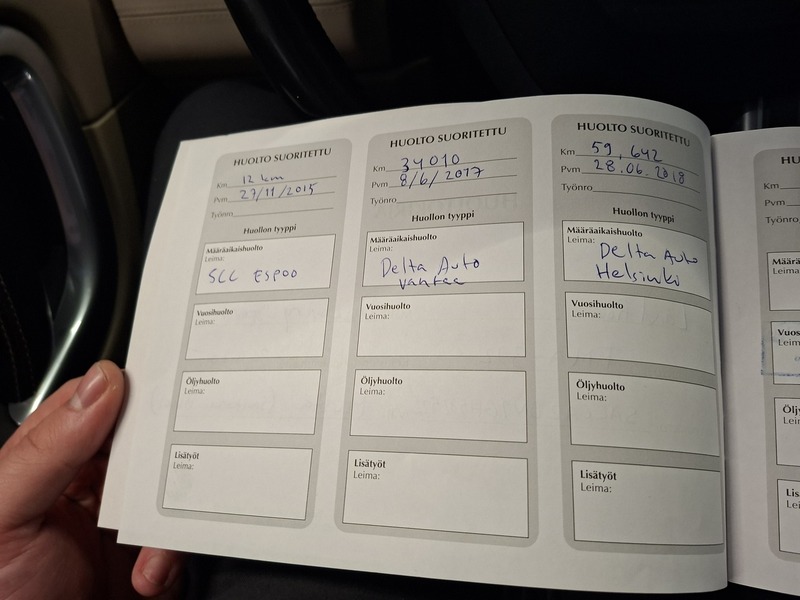 HUOLTO SUORITETTU
Km 12 km
Pvm 27/11/2015
Työnro
Huollon tyyppi
Määräaikaishuolto
Leima:
SCC ESPOO
Vuosihuolto
Leima:
Öljyhuolto
Leima:
Lisätyöt
Leima:
HUOLTO SUORITETTU
Km 34010
Pvm 8/6/2017
Työnro
Huollon tyyppi
Määräaikaishuolto
Leima:
Delta Auto
Vantaa
Vuosihuolto
Leima:
Öljyhuolto
Leima:
Lisätyöt
Leima:
HUOLTO SUORITETTU
Km 59,642
Pvm 28.06.2018
Työnro
Huollon tyyppi
Määräaikaishuolto
Leima:
Delta Auto
Helsinki
Vuosihuolto
Leima:
Öljyhuolto
Leima:
Lisätyöt
Leima:
Km
Pvm
Työnro